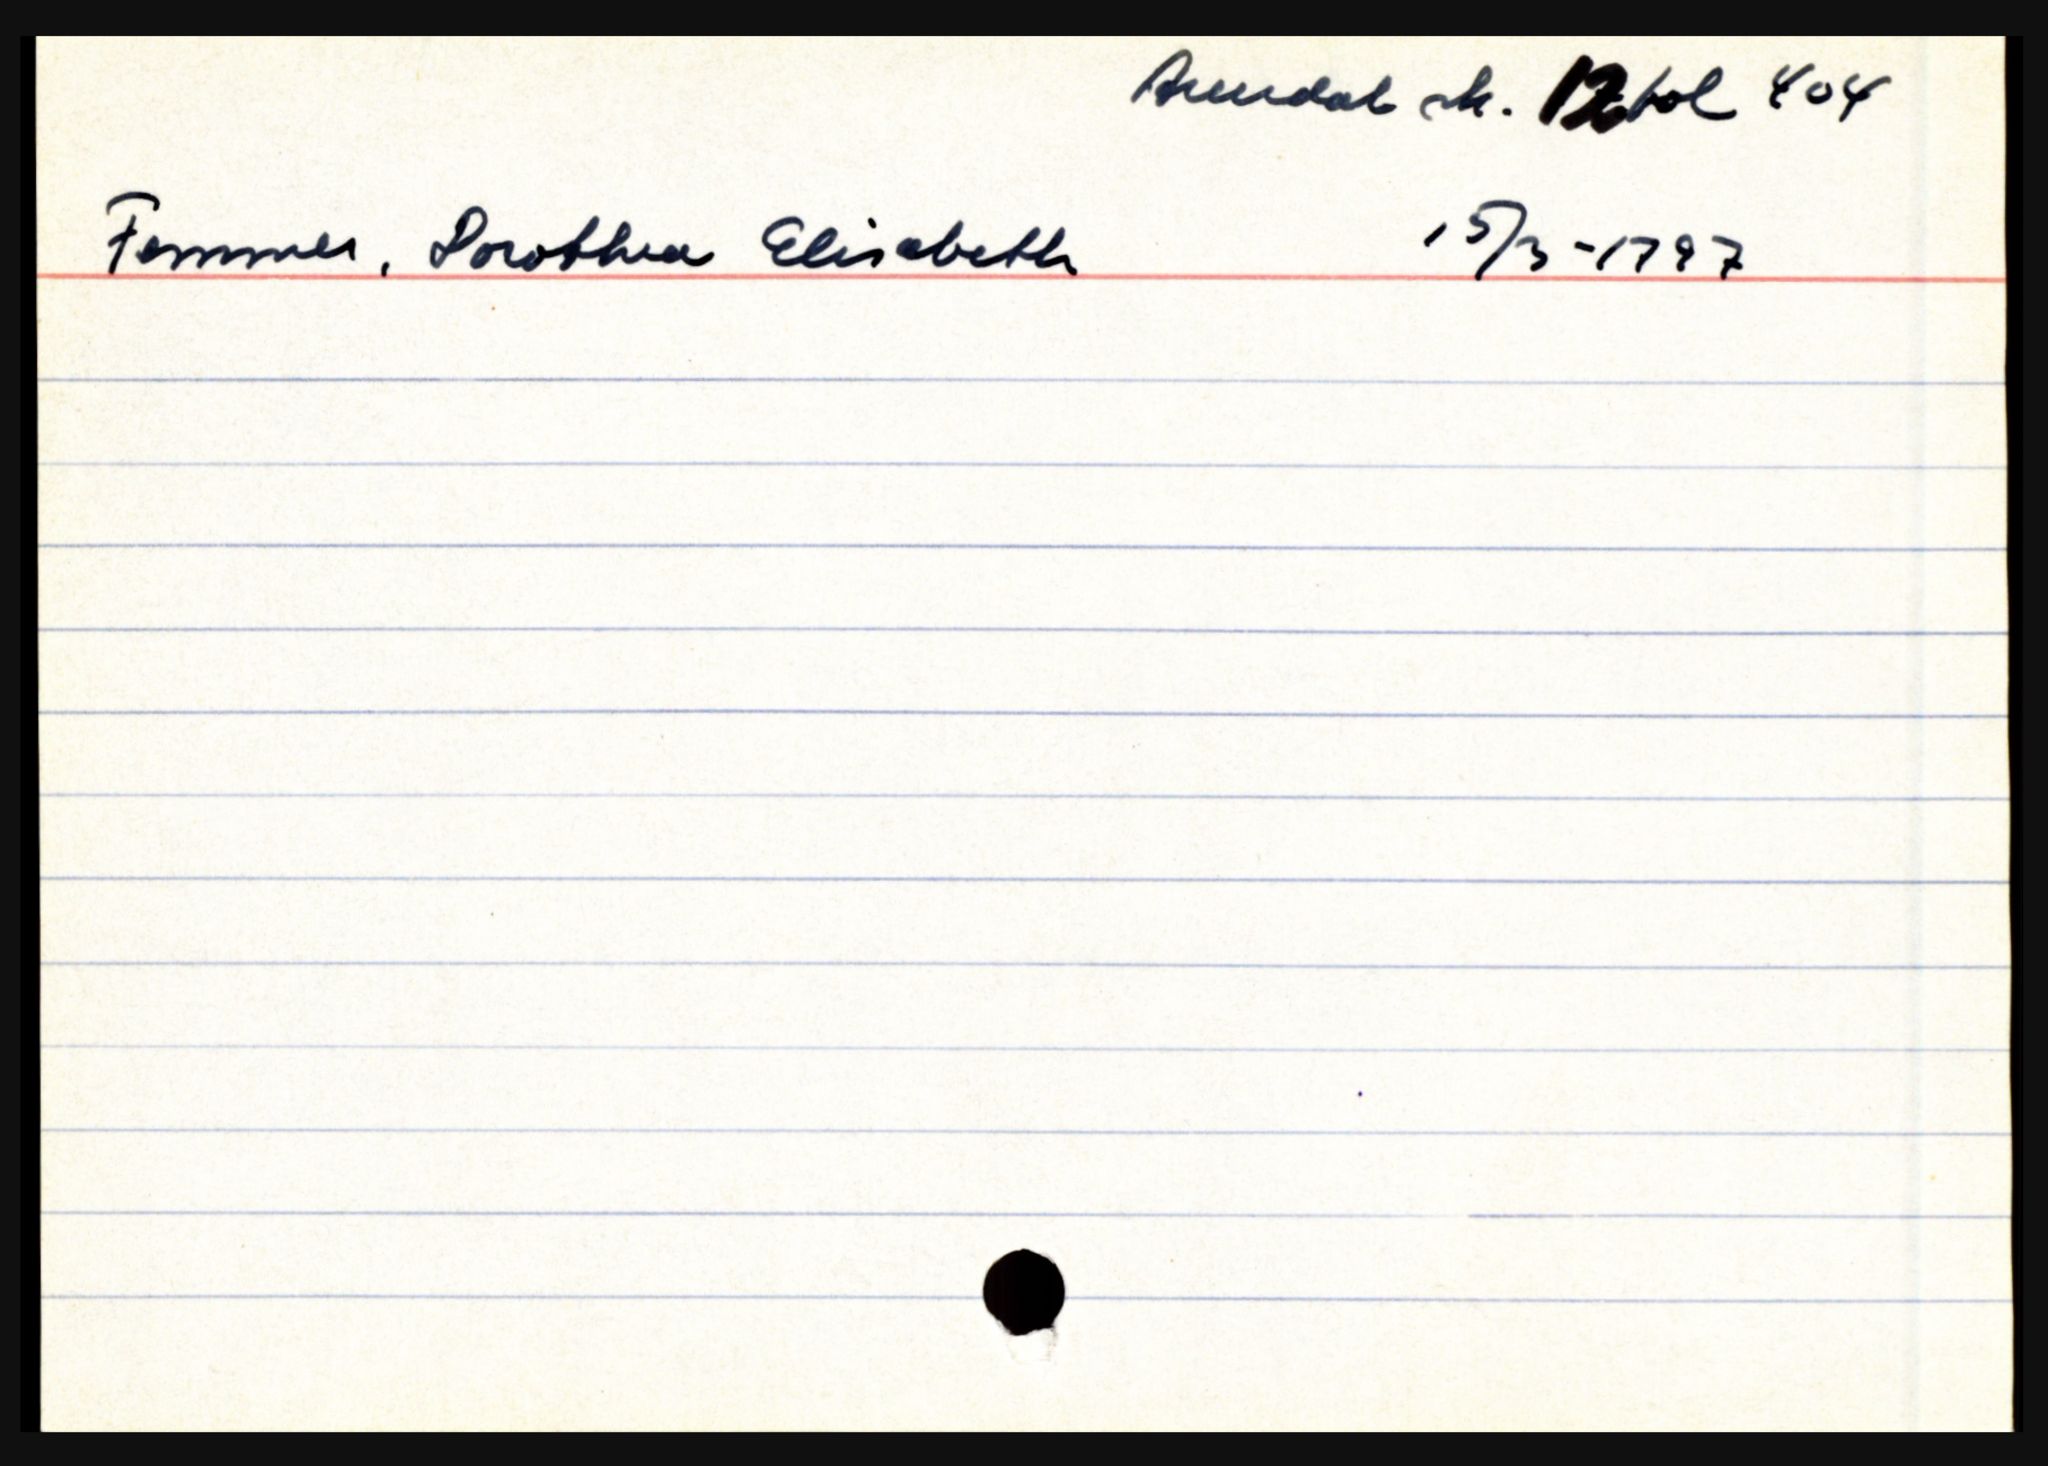 Arendal sk. 12 fol 404
Femmer, Dorothea Elisabeth 15/3-1797